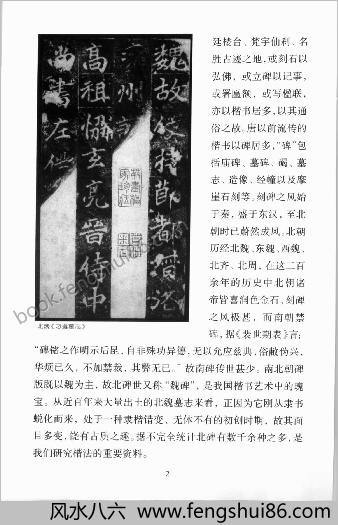 魏故使持節都督
州
高祖慟玄亮晉侍中
尚書左
北魏《刁遵墓志》
廷楼台、梵宇仙刹、名
胜古迹之地，或刻石以
弘佛，或立碑以记事，
或署匾额，或写楹联，
亦以楷书居多，以其通
俗之故。唐以前流传的
楷书以碑居多，“碑”包
括庙碑、墓碑、碣、墓
志、造像、经幢以及摩
崖石刻等。刻碑之风始
于秦，盛于东汉，至北
朝时已蔚然成风。北朝
历经北魏、东魏、西魏、
北齐、北周，在这二百
余年的历史中北朝诸
帝皆喜润色金石，刻碑
之风极甚，而南朝禁
碑，据《裴世期表》言：
“碑铭之作明示后昆，自非殊功异德，无以允应兹典，俗敝伪兴，
华烦已久，不加禁裁，其弊无已。”故南碑传世甚少。南北朝碑
版既以魏为主，故北碑世又称“魏碑”，是我国楷书艺术中的瑰
宝。从近百年来大量出土的北魏墓志来看，正因为它刚从隶书
蜕化而来，处于一种隶楷错变、无体不有的初创时期，故其面
目多变，饶有古质之趣。据不完全统计北碑有数千余种之多，是
我们研究楷法的重要资料。
2
book.fengshui86.com
风水八六 www.fengshui86.com